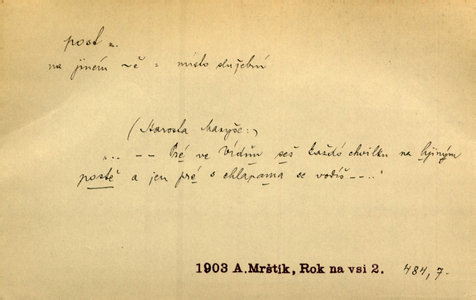 post m.
na jiném ~ě = místo služební
(Starosta Maryše:)
„.. — — Pré ve Vídňu seš každó chvilku na hjiným
postě a jen pré s chlapama se vodíš — — .."
1903 A.Mrštík, Rok na vsi 2. 484,7.